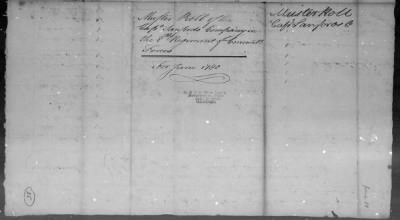 Muster Roll of the
Capt Sanfords Company in
the 8th Regiment of Connectt
Forces
For June 1780
Muster Roll
Capt Sanfords C
(55)
June 80